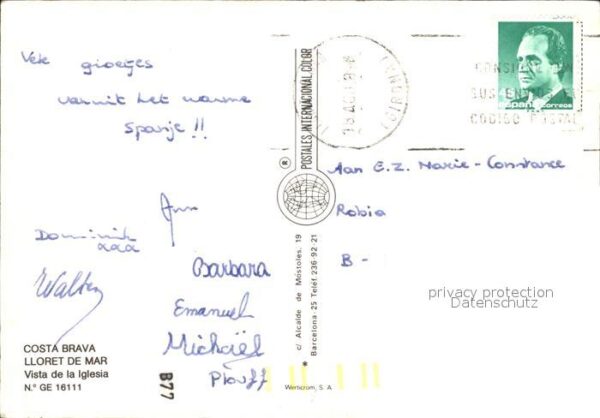 Vele groetjes
vanuit het warme
Spanje !!
Ann
Dominik
xxx
Walter
Barbara
Emanuel
Michaël
Plouff
COSTA BRAVA
LLORET DE MAR
Vista de la Iglesia
N.º GE 16111
B77
POSTALES INTERNACIONAL COLOR
®
c/ Alcalde de Móstoles, 19
Barcelona - 25 Teléf. 236 92 21
Werticrom, S. A.
GERONA
CODIGO POSTAL
España correos
Aan E.Z. Marie-Constance
Robia
B -
privacy protection
Datenschutz